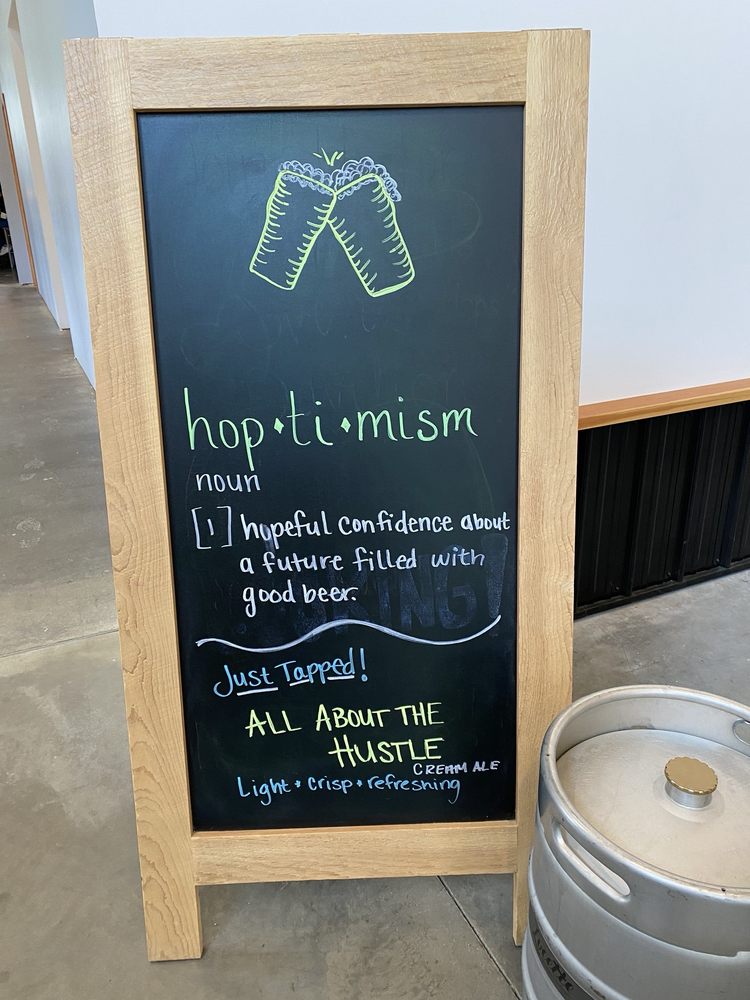 hop⬩ti⬩mism
noun
[1] hopeful confidence about
a future filled with
good beer.
Just Tapped!
ALL ABOUT THE
HUSTLE
CREAM ALE
Light • Crisp • refreshing